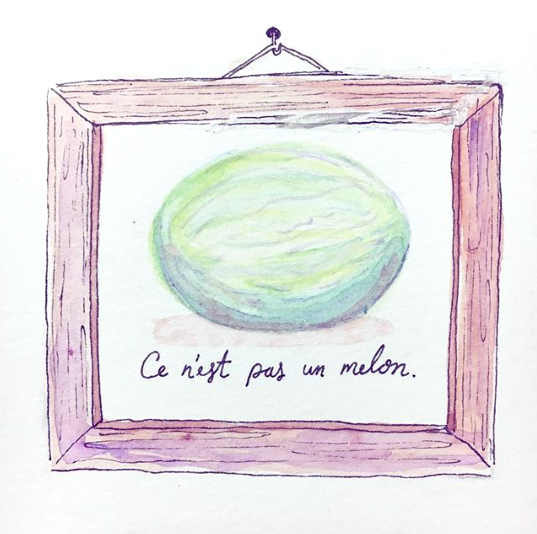 Ce n'est pas un melon.